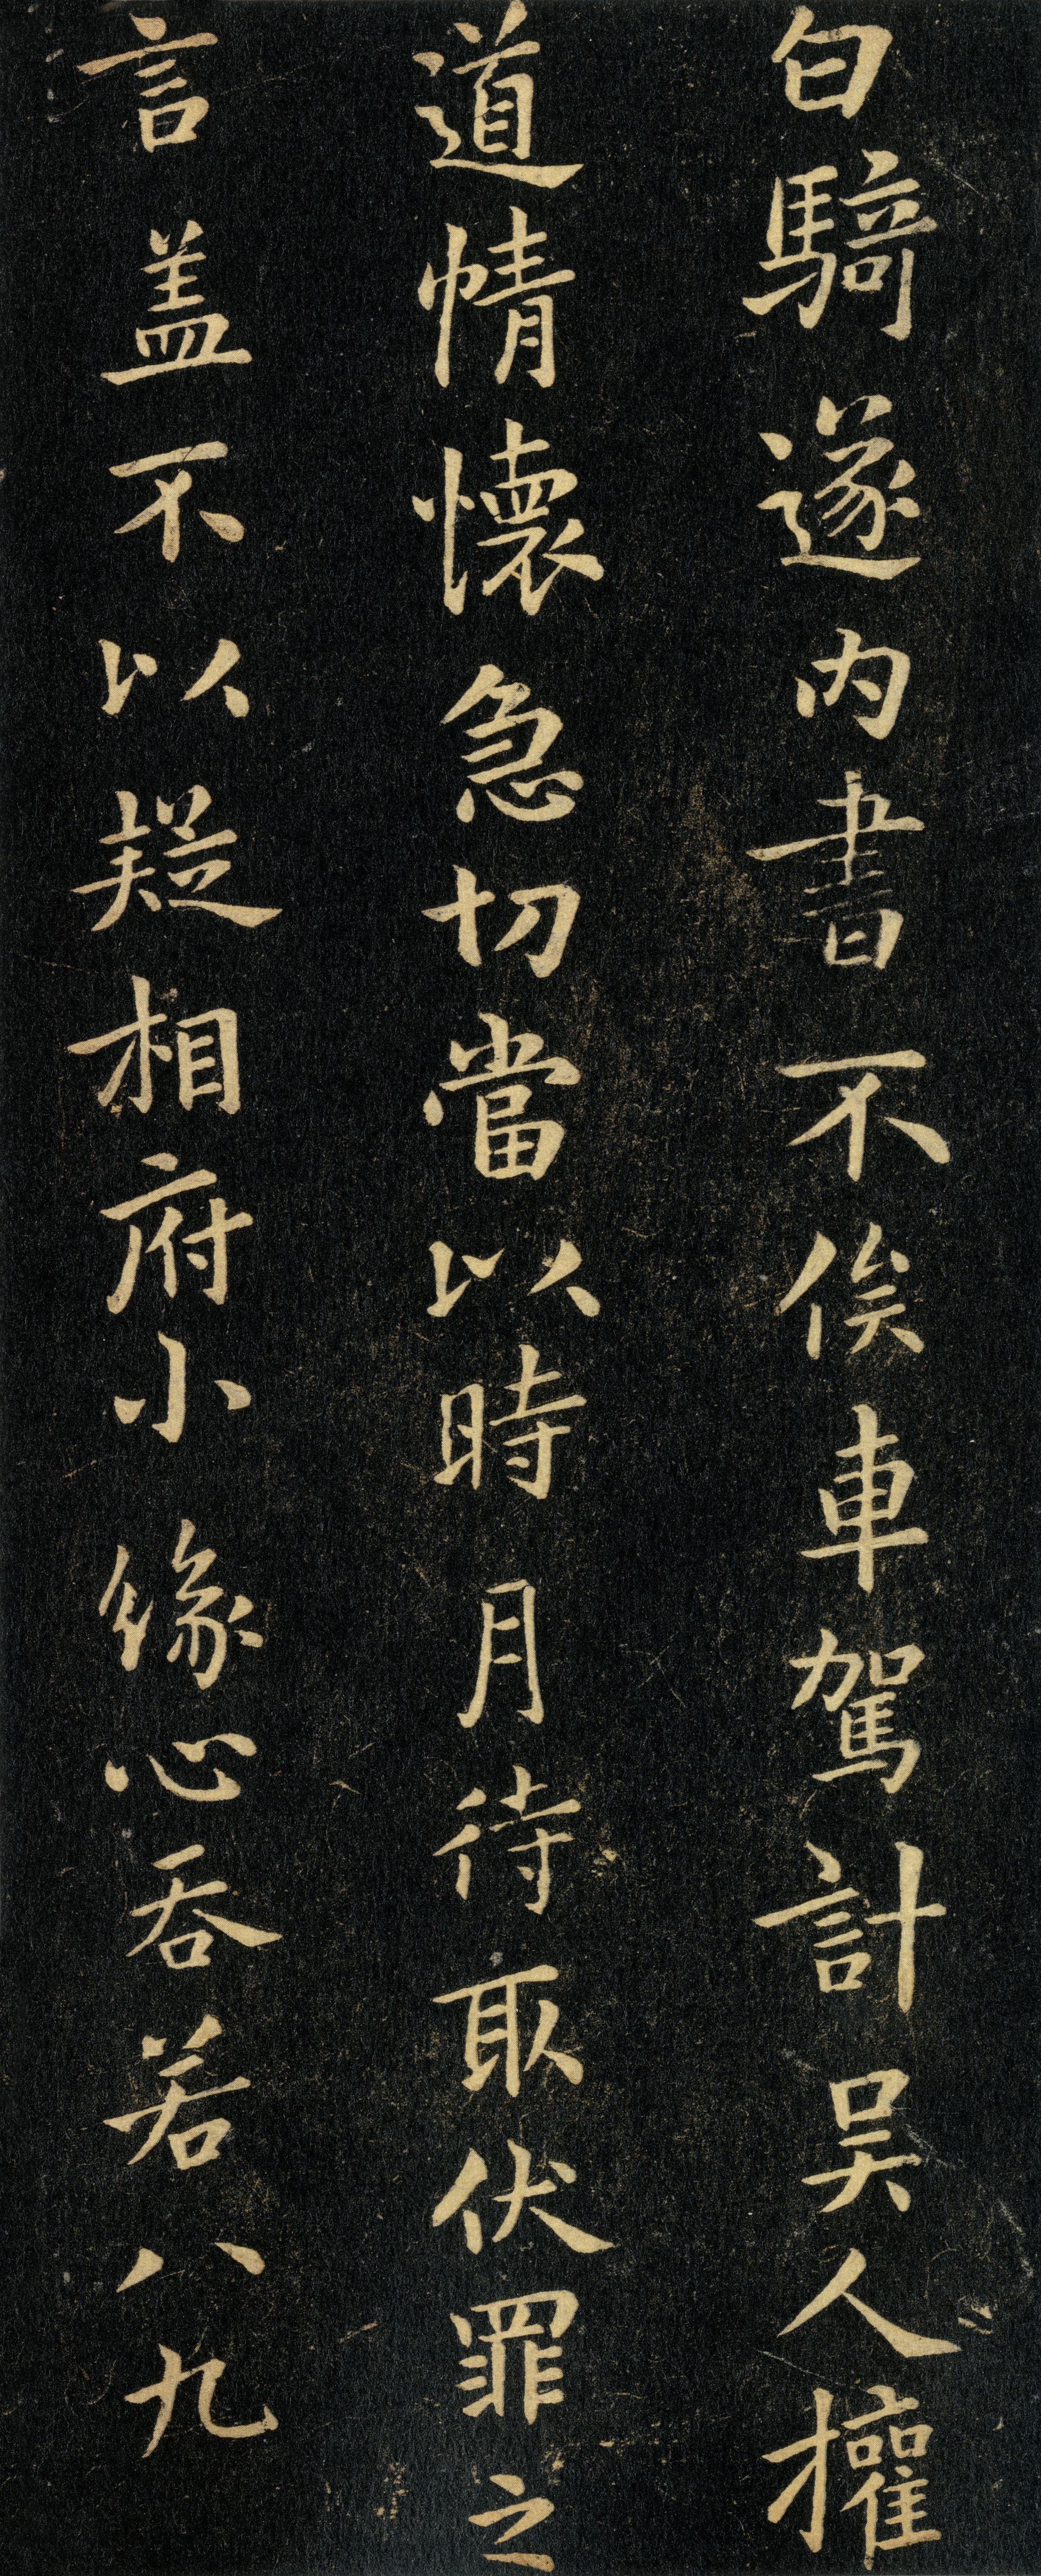 白騎遂內書不俟車駕計吳人擁
道情懷急切當以時月待取伏罪之
言盖不以疑相府小緣心吞若八九